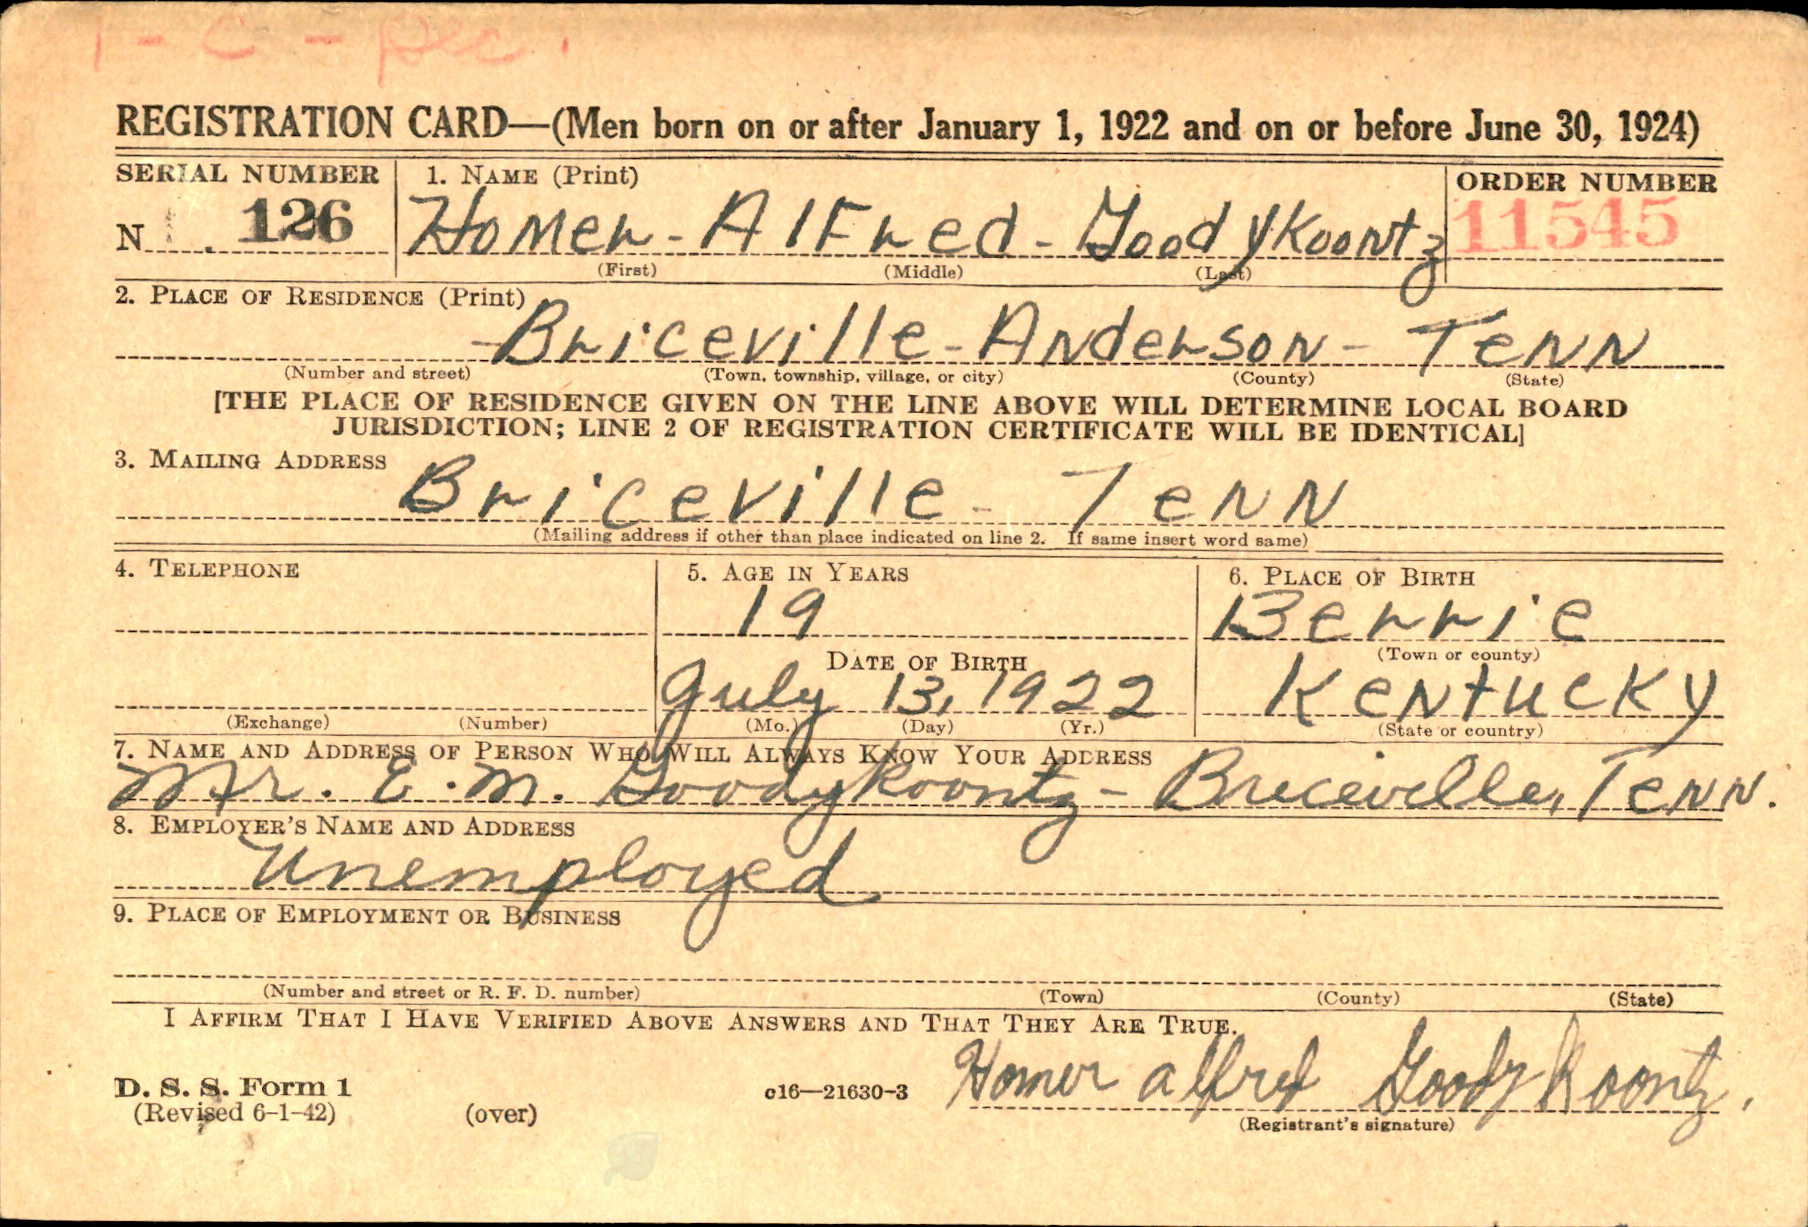 1 - C - Dec.
REGISTRATION CARD—(Men born on or after January 1, 1922 and on or before June 30, 1924)
SERIAL NUMBER
N 126
1. NAME (Print)
Homer - Alfred - Goodykoontz
(First) (Middle) (Last)
ORDER NUMBER
11545
2. PLACE OF RESIDENCE (Print)
- Briceville - Anderson - Tenn
(Number and street) (Town, township, village, or city) (County) (State)
[THE PLACE OF RESIDENCE GIVEN ON THE LINE ABOVE WILL DETERMINE LOCAL BOARD
JURISDICTION; LINE 2 OF REGISTRATION CERTIFICATE WILL BE IDENTICAL]
3. MAILING ADDRESS
Briceville - Tenn
(Mailing address if other than place indicated on line 2. If same insert word same)
4. TELEPHONE
(Exchange) (Number)
5. AGE IN YEARS
19
DATE OF BIRTH
July 13, 1922
(Mo.) (Day) (Yr.)
6. PLACE OF BIRTH
Berrie
(Town or county)
Kentucky
(State or country)
7. NAME AND ADDRESS OF PERSON WHO WILL ALWAYS KNOW YOUR ADDRESS
Mr. E. M. Goodykoontz - Briceville, Tenn.
8. EMPLOYER'S NAME AND ADDRESS
Unemployed
9. PLACE OF EMPLOYMENT OR BUSINESS
(Number and street or R. F. D. number) (Town) (County) (State)
I AFFIRM THAT I HAVE VERIFIED ABOVE ANSWERS AND THAT THEY ARE TRUE.
D. S. S. Form 1
(Revised 6-1-42) (over) c16—21630-3
Homer alfred Goodykoontz.
(Registrant's signature)